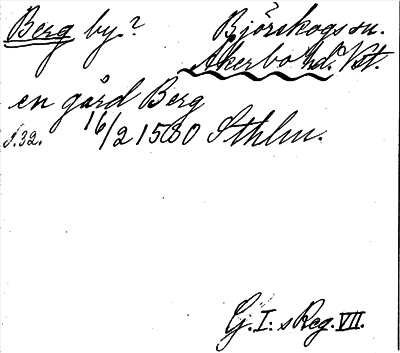 Berg by? Björskogs sn.
Åkerbo hd. Vst.
en gård Berg
s.32. 16/2 1580 Sthlm.
G. I:s Reg. VII.